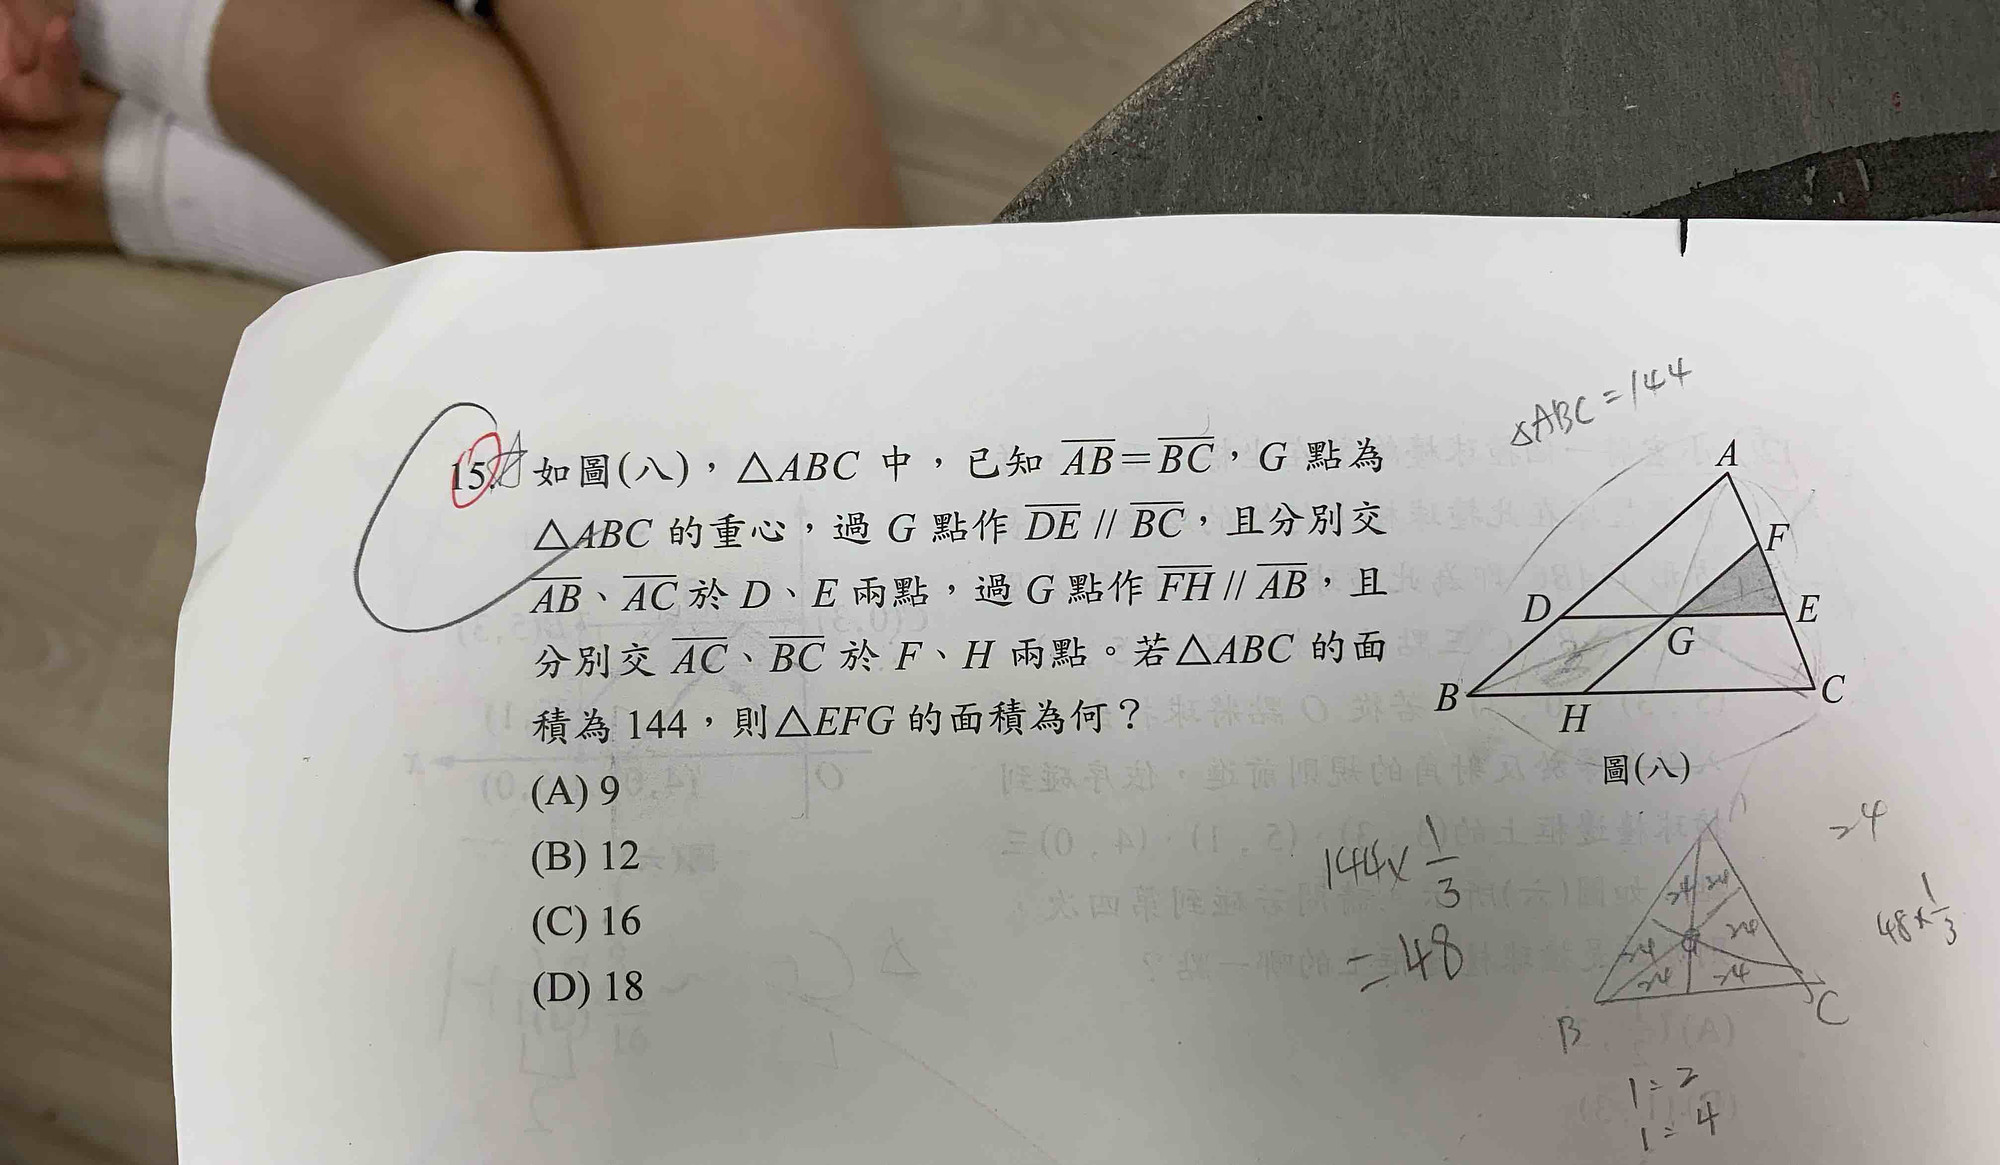 △ABC=144
15. 如圖(八)，△ABC 中，已知 AB=BC，G 點為
△ABC 的重心，過 G 點作 DE // BC，且分別交
AB、AC 於 D、E 兩點，過 G 點作 FH // AB，且
分別交 AC、BC 於 F、H 兩點。若△ABC 的面
積為 144，則△EFG 的面積為何？
(A) 9
(B) 12
(C) 16
(D) 18
A
F
D
E
G
B
C
H
圖(八)
144×1/3
=48
24
48×1/3
24 24
24 24
24 24
B
C
1:2
1:4